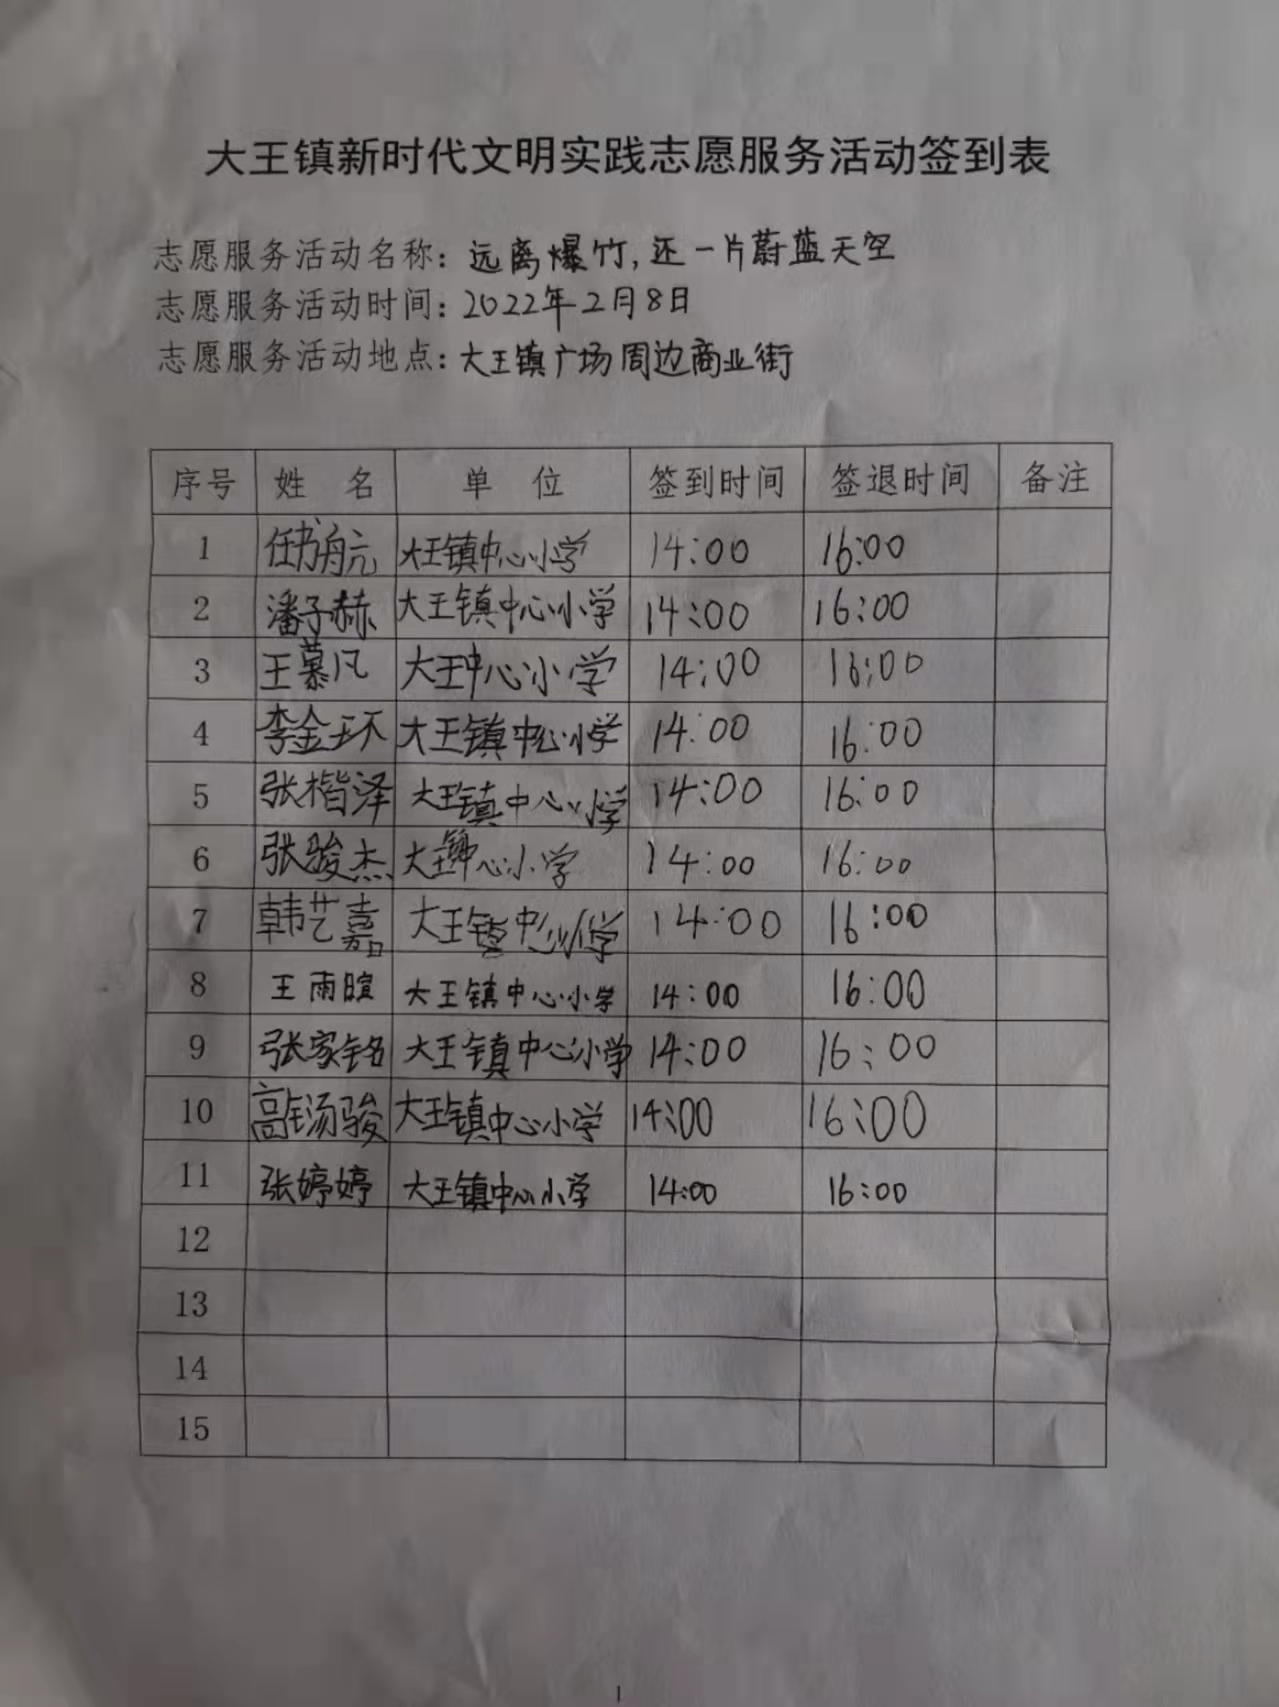 大王镇新时代文明实践志愿服务活动签到表
志愿服务活动名称：远离爆竹，还一片蔚蓝天空
志愿服务活动时间：2022年2月8日
志愿服务活动地点：大王镇广场周边商业街
序号 姓 名 单 位 签到时间 签退时间 备注
1 任书航 大王镇中心小学 14:00 16:00
2 潘子赫 大王镇中心小学 14:00 16:00
3 王慕凡 大王中心小学 14:00 16:00
4 李金环 大王镇中心小学 14:00 16:00
5 张楷泽 大王镇中心小学 14:00 16:00
6 张骏杰 大王镇中心小学 14:00 16:00
7 韩艺嘉 大王镇中心小学 14:00 16:00
8 王雨暄 大王镇中心小学 14:00 16:00
9 张家铭 大王镇中心小学 14:00 16:00
10 大王镇中心小学 14:00 16:00
11 张婷婷 大王镇中心小学 14:00 16:00
12
13
14
15
1